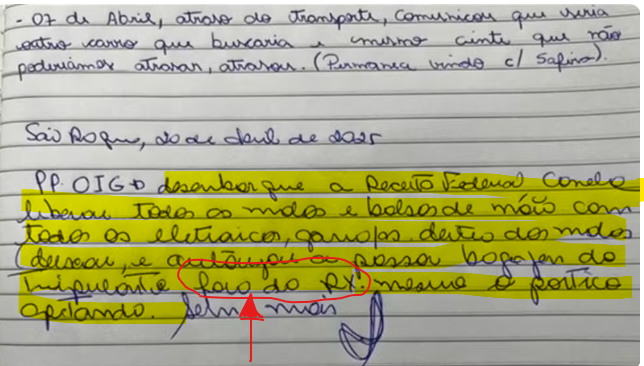 - 07 de Abril, atraso do transporte, comunicou que seria
outro carro que buscaria e mesmo ciente que não
poderíamos atrasar, atrasou. (Permanea vindo c/ Safira).
São Roque, 20 de abril de 2025
PP. OIG → desembarque a Receita Federal Canela
liberou todas as malas e bolsas de mão com
todos os eletroicos, garrafas dentro das malas
(deixou, e autorizou a nossa bagagem do
tripulante fora do RX! mesmo o pórtico
apitando. Sem mais